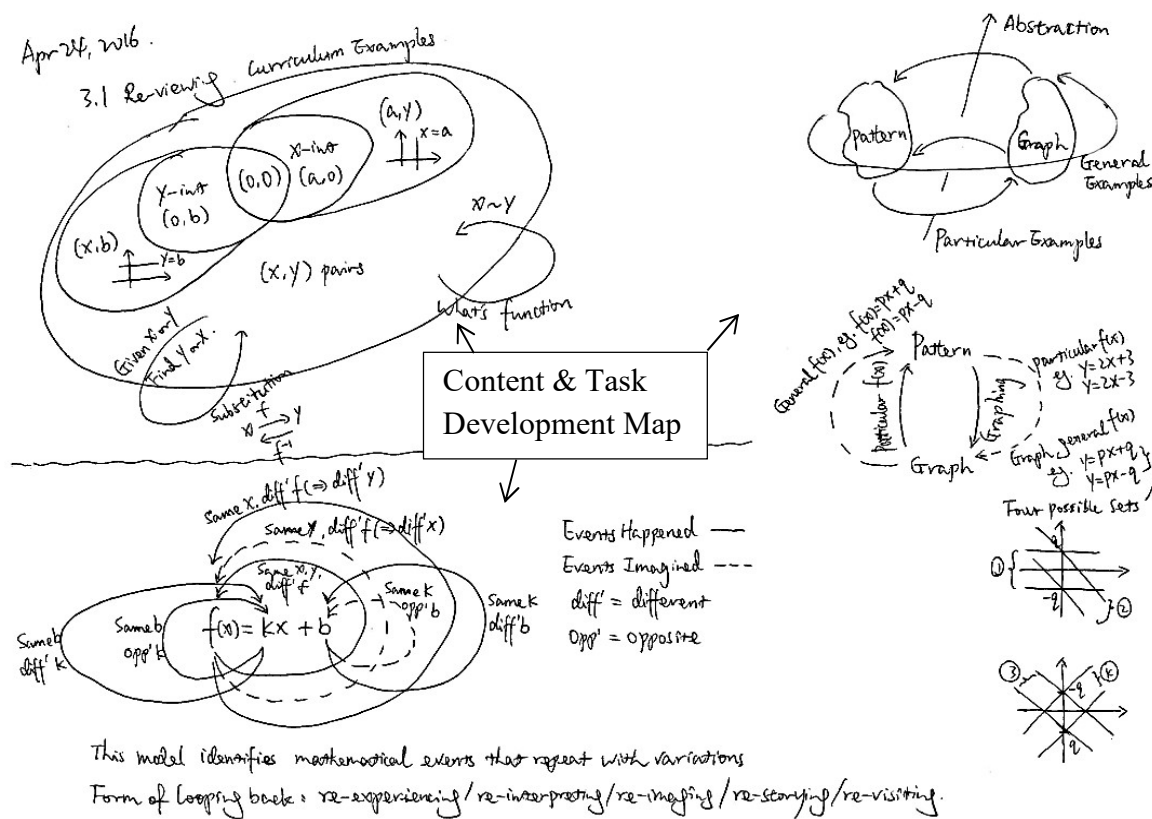 Apr 24, 2016.
3.1 Re-viewing Curriculum Examples
(a,y)
x=a
x-int
(a,0)
(0,0)
Y-int
(0,b)
(x,b)
y=b
(x,y) pairs
x~y
What's function
Given x or y
Find y or x.
Substitution
f
x y
f⁻¹
Abstraction
Pattern
Graph
General
Examples
Particular Examples
Content & Task
Development Map
General f(x), eg. f(x)=px+q
f(x)=px-q
Pattern
Particular f(x)
Graphing
particular f(x)
eg. y=2x+3
y=2x-3
Graph
Graph general f(x)
eg. y=px+q
y=px-q
Four possible sets
①
q
-q
②
③
-q
q
Same x, diff' f (⇒ diff' y)
Same y, diff' f (⇒ diff' x)
Same x, y,
diff' f
Same k
opp' b
Same k
diff' b
Same b
diff' k
Same b
opp' k
f(x) = kx + b
Events Happened —
Events Imagined ---
diff' = different
opp' = opposite
This model identifies mathematical events that repeat with variations
Form of looping back: re-experiencing/re-interpreting/re-imaging/re-storying/re-visiting.